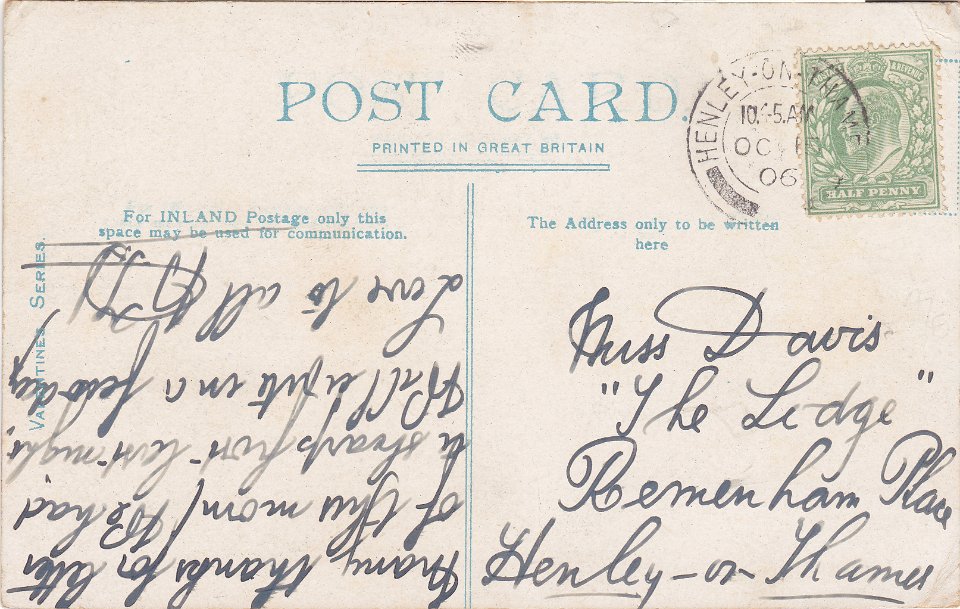 POST CARD.
PRINTED IN GREAT BRITAIN
HENLEY-ON-THAMES
10.45.AM
OC
06
HALF PENNY
For INLAND Postage only this
space may be used for communication.
The Address only to be written
here
VALENTINES SERIES.
Miss Davis
"The Lodge"
Remenham Place
Henley-on-Thames
Many thanks for letter
of this morn/ We had
a sharp frost last night.
Will write in a few days
Love to all